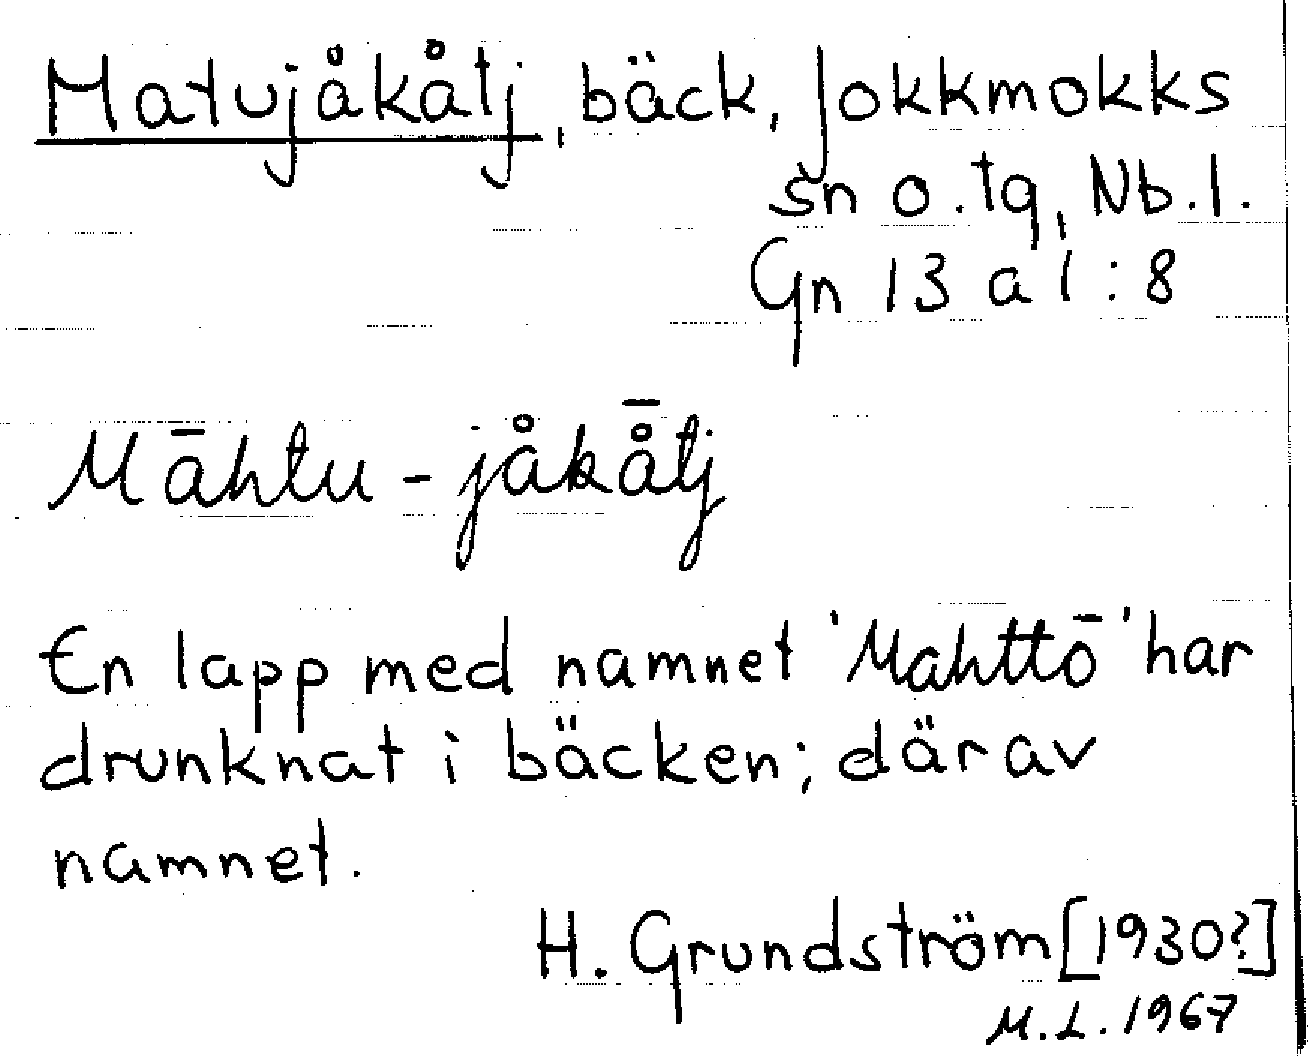 Matujåkåtj, bäck, Jokkmokks
sn o. tg, Nb. l.
Gn 13 a 1 : 8
Māhtu - jåkå̄tj
En lapp med namnet 'Mahttō' har
drunknat i bäcken; därav
namnet.
H. Grundström [1930?]
M.L. 1967